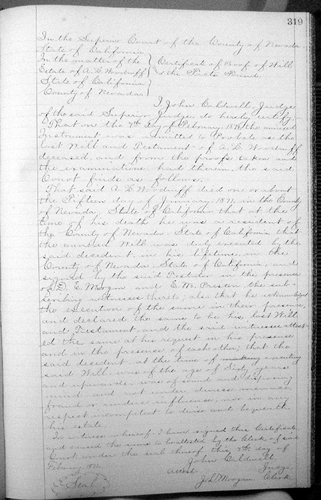 319
In the Superior Court of the County of Nevada
State of California
In the matter of the } Certificate of Proof of Will
Estate of A. L. Woodruff } & the Facts Found
State of California }
County of Nevada }
I John Caldwell, Judge
of the said Superior Judge do hereby certify:
That on the 7th day of February 1881, the annexed
Instrument was admitted to Probate as the
last Will and Testament of A. L. Woodruff
deceased, and from the proofs taken and
the examination had therein, the said
Court finds as follows:
That said A. L. Woodruff died on or about
the Fifteen day of January 1881, in the County
of Nevada, State of California that at the
time of his death he was a resident of
the County of Nevada State of California that
the annexed Will was duly executed by the
said decedent in his lifetime in the
County of Nevada State of California, and
signed by the said Testator in the presence
of D. E. Morgan and E. M. Preston the sub-
scribing witnesses thereto; also that he acknowledged
the execution of the same in their presence,
and declared the same to be his last Will
and Testament, and the said witnesses attest-
ed the same at his request in his presence
and in the presence of each other; that the
said decedent at the time of executing
said Will was of the age of Sixty years
and upwards was of sound and disposing
mind and not under duress menace
fraud or undue influence, nor in any
respect incompetent to devise and bequeath
his estate.
In witness whereof I have signed this Certificate
and caused the same to be attested by the Clerk of said
Court under the seal thereof this 7th day of
February 1881.
John Caldwell
Judge
Attest
Clerk
Seal